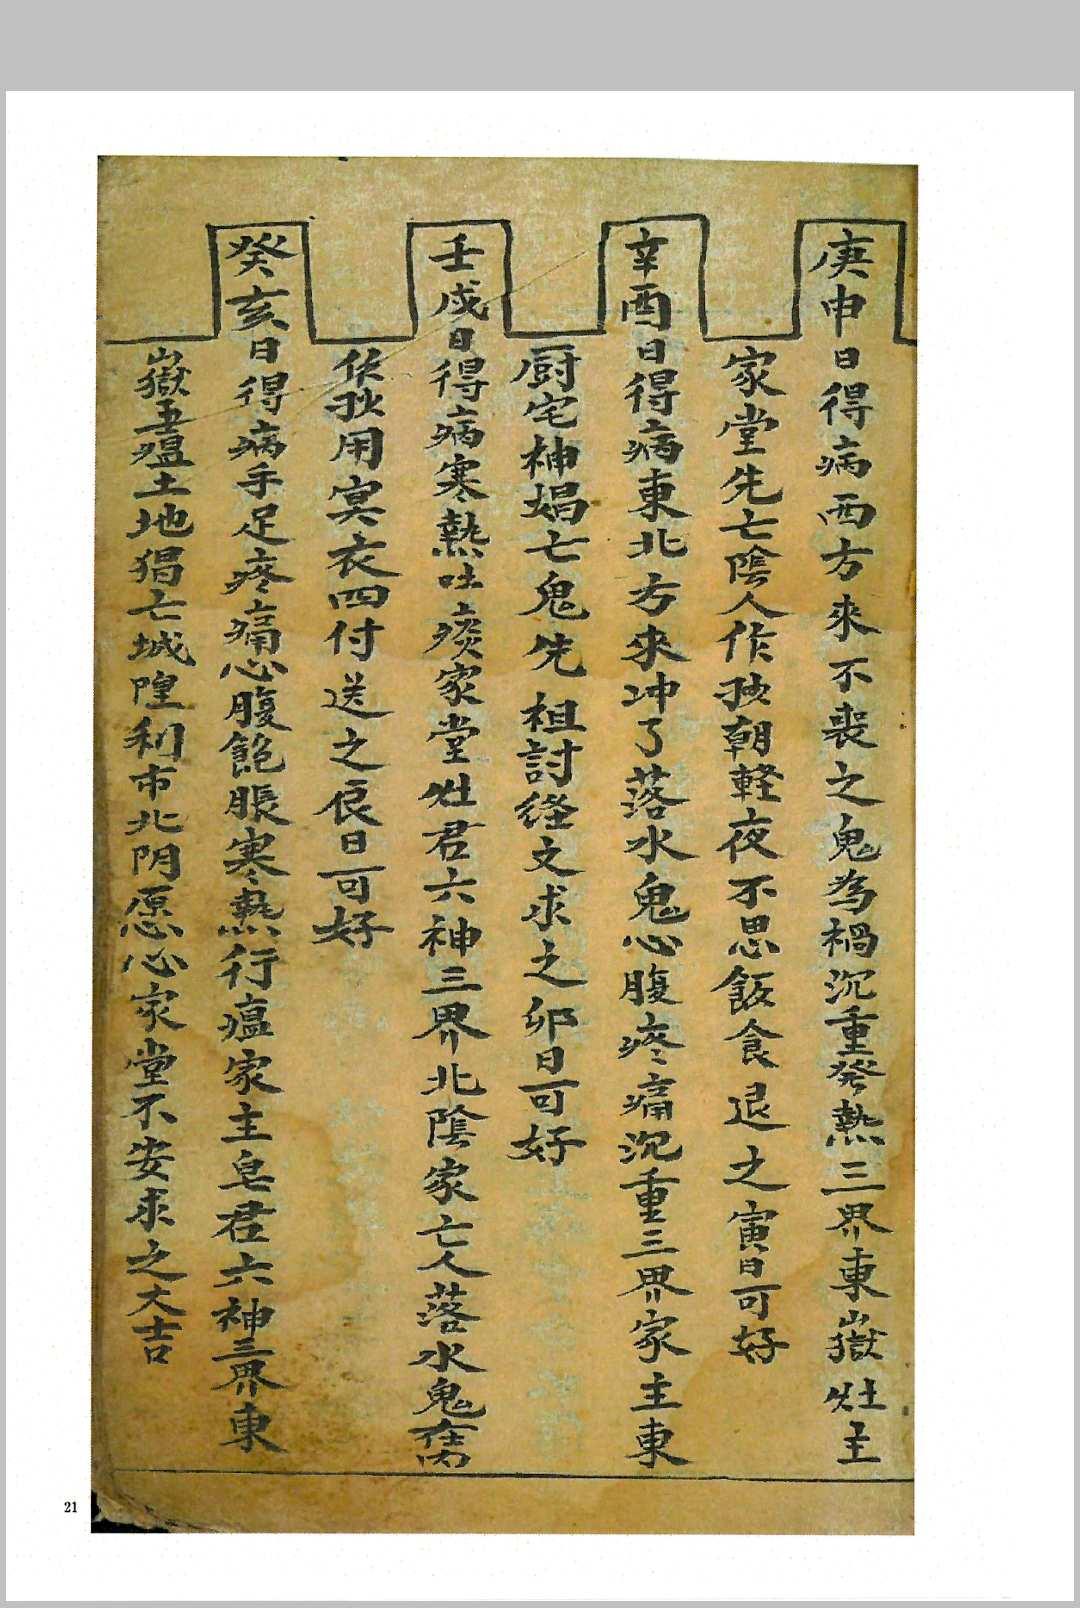 庚申日得病西方來不喪之鬼為禍沉重發熱三界東嶽灶主
家堂先亡陰人作㧡朝輕夜不思飯食退之寅日可好
辛酉日得病東北方來冲了落水鬼心腹疼痛沉重三界家主東
厨宅神娼亡鬼先祖討経文求之卯日可好
壬戌日得病寒熱吐痰家堂灶君六神三界北陰家亡人落水鬼在内
作㧡用寘衣四付送之辰日可好
癸亥日得病手足疼痛心腹飽脹寒热行瘟家主皂君六神三界東
嶽五瘟土地猖亡城隍利市北阴愿心家堂不安求之大吉
21